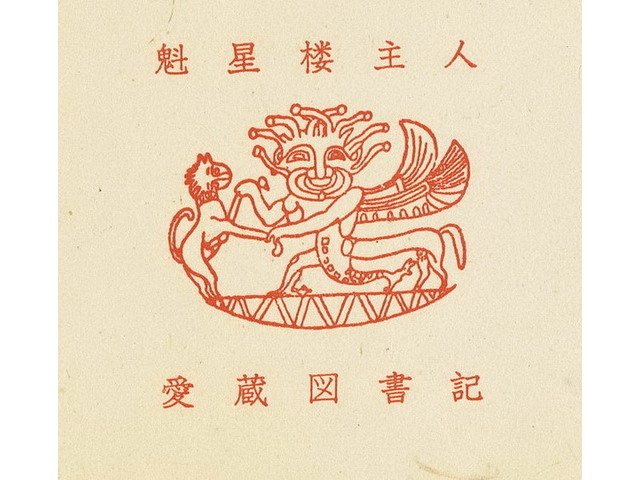 魁星楼主人
愛蔵図書記